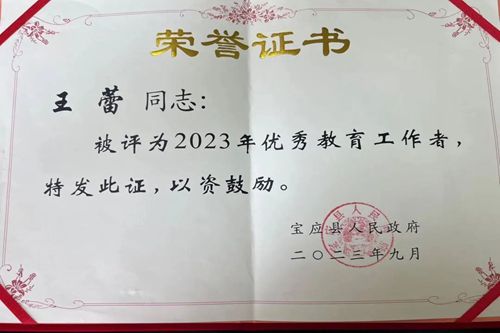 荣誉证书
王 蕾 同志：
被评为2023年优秀教育工作者，
特发此证，以资鼓励。
宝应县人民政府
二〇二三年九月